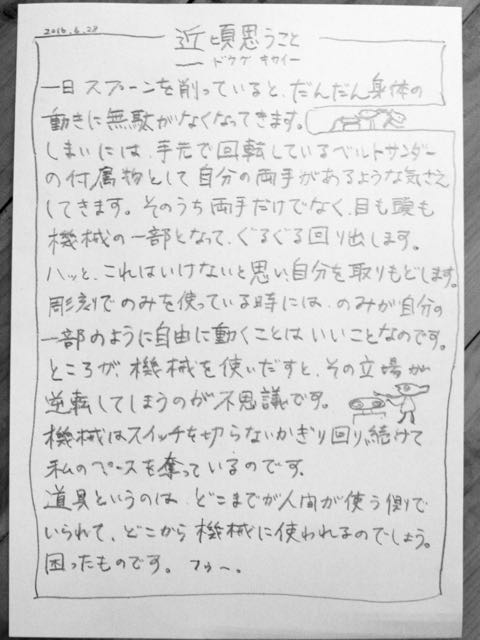 2016.6.28
近頃思うこと
ドウゲ キウイー
一日スプーンを削っていると、だんだん身体の
動きに無駄がなくなってきます。
しまいには、手元で回転しているベルトサンダー
の付属物として自分の両手があるような気さえ
してきます。そのうち両手だけでなく、目も頭も
機械の一部となって、ぐるぐる回り出します。
ハッと、これはいけないと思い、自分を取りもどします。
彫刻でのみを使っている時には、のみが自分の
一部のように自由に動くことはいいことなのです。
ところが、機械を使いだすと、その立場が
逆転してしまうのが不思議です。
機械はスイッチを切らないかぎり回り続けて
私のペースを奪っているのです。
道具というのは、どこまでが人間が使う側で
いられて、どこから機械に使われるのでしょう。
困ったものです。フゥ〜。